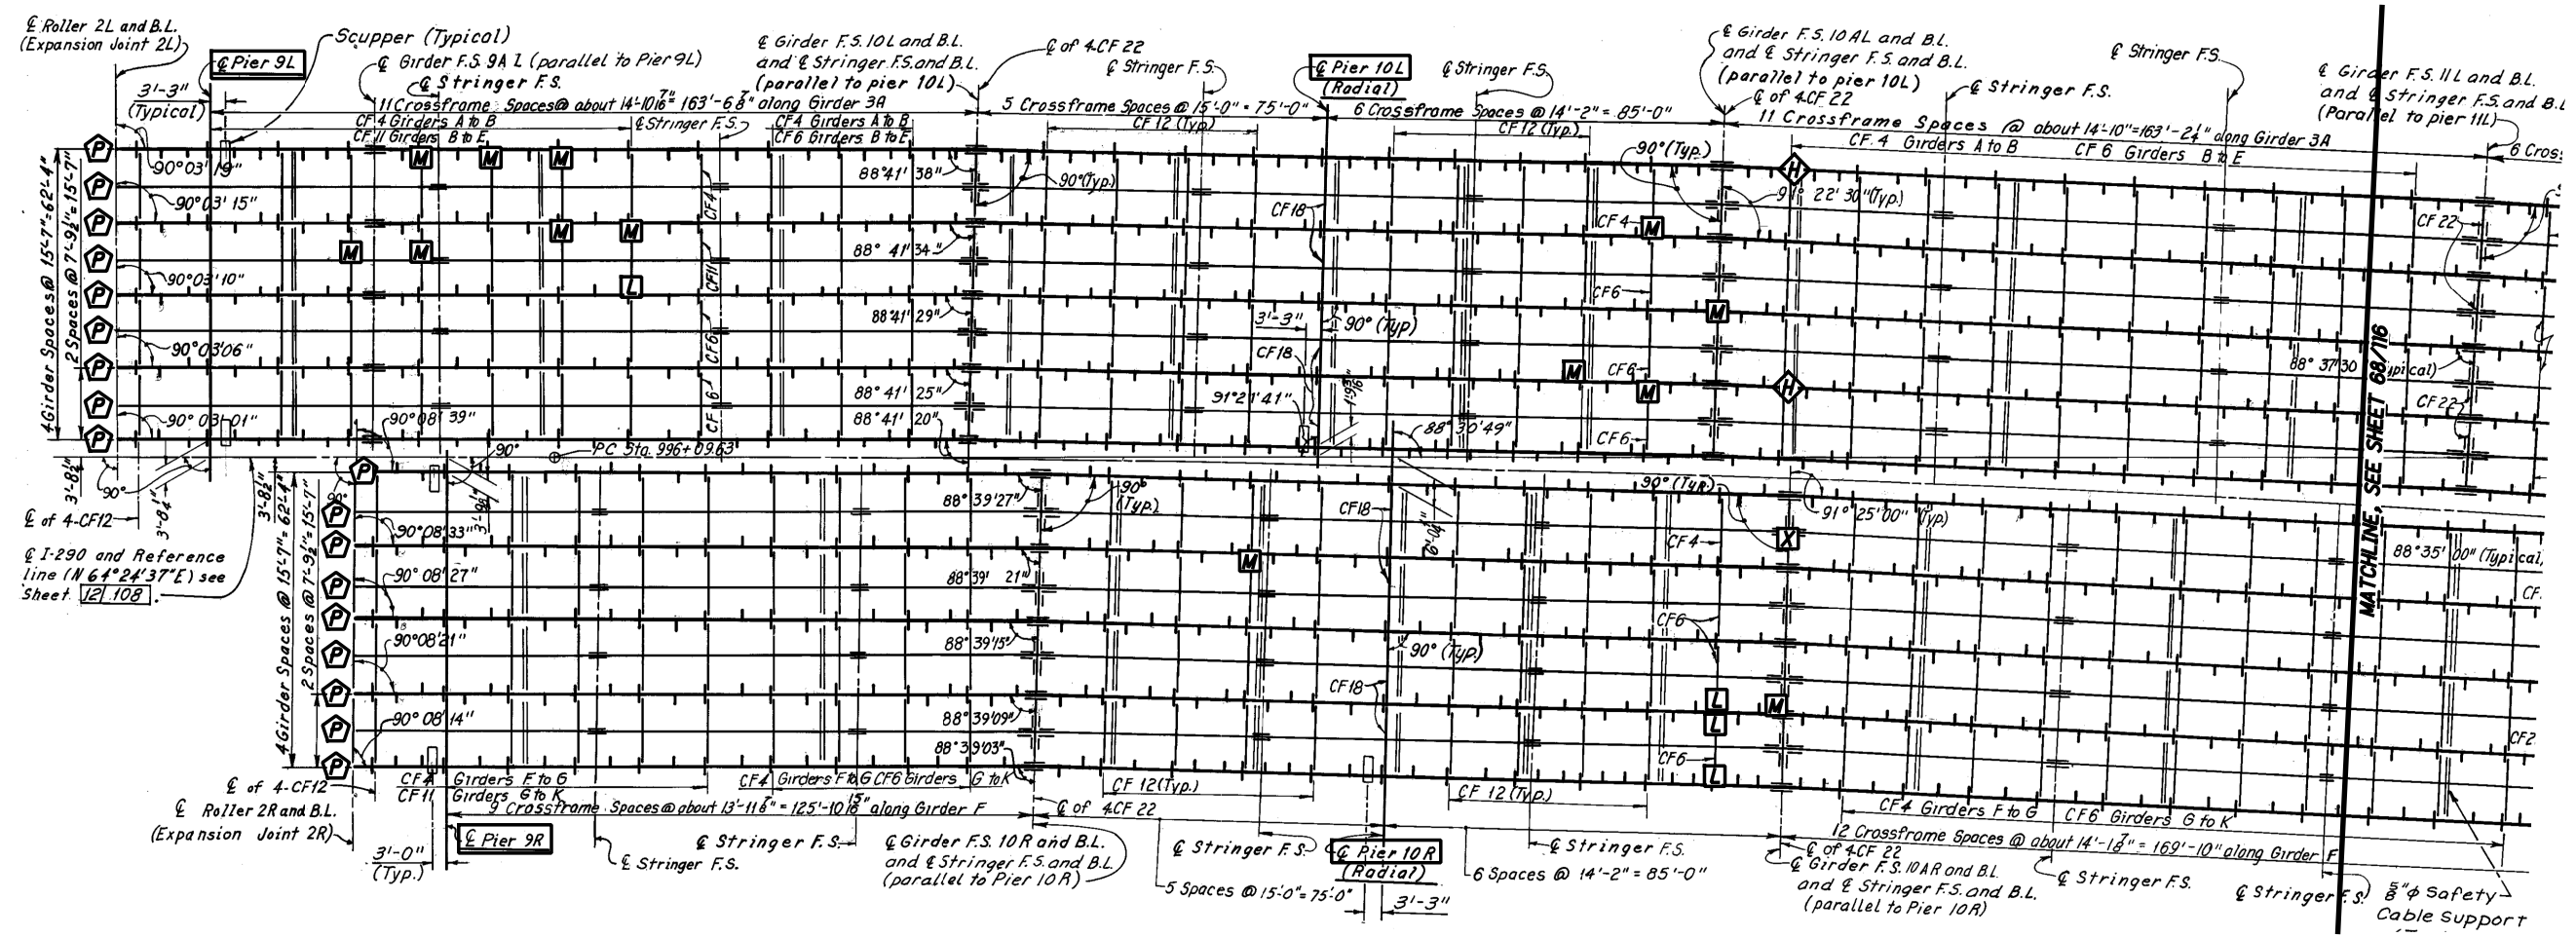 ℄ Roller 2L and B.L.
(Expansion Joint 2L)
℄ Pier 9L
Scupper (Typical)
℄ Girder F.S. 9A L (parallel to Pier 9L)
℄ Stringer F.S.
℄ Girder F.S. 10L and B.L.
and ℄ Stringer F.S. and B.L.
(parallel to pier 10L)
℄ of 4-CF 22
℄ Stringer F.S.
℄ Pier 10L
(Radial)
℄ Stringer F.S.
℄ Girder F.S. 10 AL and B.L.
and ℄ Stringer F.S. and B.L.
(parallel to pier 10L)
℄ of 4-CF 22
℄ Stringer F.S.
℄ Stringer F.S.
℄ Girder F.S. 11L and B.L.
and ℄ Stringer F.S. and B.L
(Parallel to pier 11L)
3'-3"
(Typical)
11 Crossframe Spaces @ about 14'-10 7/16" 163'-6 7/8" along Girder 3A
5 Crossframe Spaces @ 15'-0" = 75'-0"
6 Crossframe Spaces @ 14'-2" = 85'-0"
11 Crossframe Spaces @ about 14'-10"=163'-2 1/4" along Girder 3A
6 Cros
CF 4 Girders A to B
CF 11 Girders B to E
℄ Stringer F.S.
CF4 Girders A to B
CF6 Girders B to E
CF 12 (Typ.)
CF 12 (Typ.)
CF. 4 Girders A to B
CF 6 Girders B to E
4 Girder Spaces @ 15'-7"=62'-4"
2 Spaces @ 7'-9 1/2"=15'-7"
P
P
P
P
P
P
P
P
P
90°03'19"
90°03'15"
90°03'10"
90°03'06"
90°03'01"
M
M
M
M
M
M
M
L
CF4
CF11
CF6
CF 6
88°41'38"
88°41'34"
88°41'29"
88°41'25"
88°41'20"
90°(Typ.)
CF18
3'-3"
90° (Typ)
CF18
91°21'41"
88°30'49"
90° (Typ.)
CF4
M
CF6
M
M
CF6
M
CF6
H
H
91° 22' 30" (Typ.)
CF 22
88° 37'30
ypical)
CF 22
MATCHLINE, SEE SHEET 68/116
90°08'39"
90°
PC Sta. 996+09.63
3'-8 1/2"
90°
3'-8 1/2"
℄ of 4-CF12
℄ I-290 and Reference
line (N 64°24'37"E) see
Sheet 12 108.
4 Girder Spaces @ 15'-7"=62'-4"
2 Spaces @ 7'-9 1/2"=15'-7"
P
P
P
P
P
P
P
P
P
90°
90°08'33"
90°08'27"
90°08'21"
90°08'14"
88°39'27"
88°39' 21"
88°39'15"
88°39'09"
88°39'03"
90°
(Typ.)
M
CF18
90° (Typ.)
CF18
90° (Typ.)
91° 25'00" (Typ.)
X
CF4
CF6
L
L
M
CF6
L
88°35'00" (Typical,
CF.
CF2
℄ of 4-CF12
℄ Roller 2R and B.L.
(Expansion Joint 2R)
CF4 Girders F to G
CF11 Girders G to K
CF4 Girders F to G CF6 Girders G to K
9 Crossframe Spaces @ about 13'-11 7/8" = 125'-10 15/16" along Girder F
3'-0"
(Typ.)
℄ Pier 9R
℄ Stringer F.S.
℄ Stringer F.S.
℄ Girder F.S. 10R and B.L.
and ℄ Stringer F.S. and B.L.
(parallel to Pier 10R)
CF 12 (Typ.)
℄ of 4CF 22
℄ Stringer F.S.
5 Spaces @ 15'-0"= 75'-0"
℄ Pier 10R
(Radial)
3'-3"
CF 12 (Typ.)
6 Spaces @ 14'-2" = 85'-0"
℄ Stringer F.S.
CF4 Girders F to G
CF6 Girders G to K
12 Crossframe Spaces @ about 14'-1 7/8" = 169'-10" along Girder F
℄ of 4CF 22
℄ Girder F.S. 10AR and B.L.
and ℄ Stringer F.S. and B.L.
(parallel to Pier 10R)
℄ Stringer F.S.
℄ Stringer F.S.
5/8" ϕ Safety
Cable Support